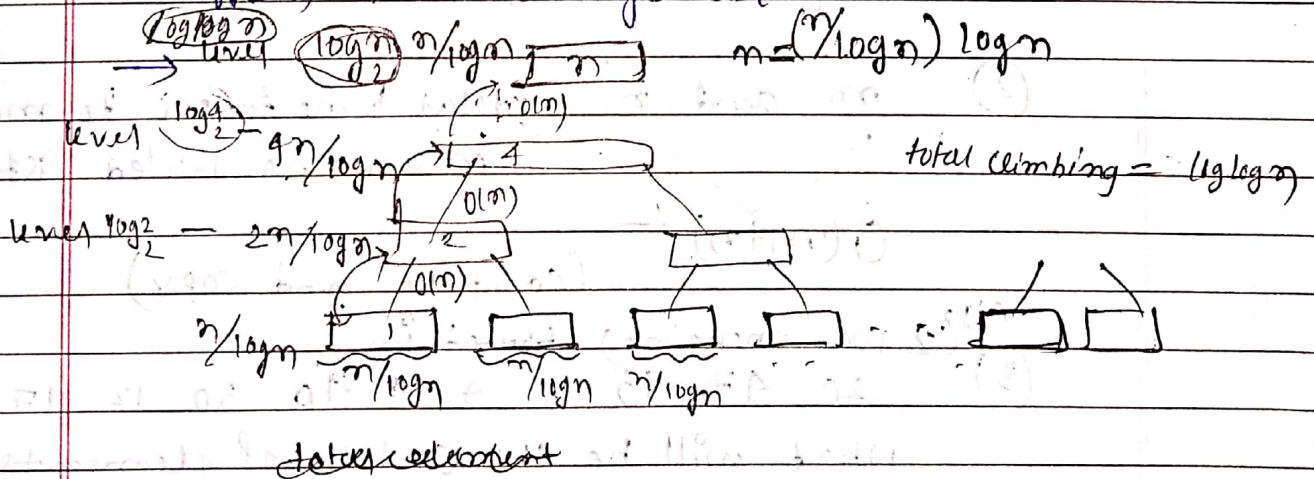 loglogn
level log n 2 n/logn n n=(n/logn) logn
O(n)
level log4 2 - 4n/logn 4 total climbing = loglogn
O(n)
level log2 2 - 2n/logn 2
O(n)
n/logn 1
n/logn n/logn n/logn